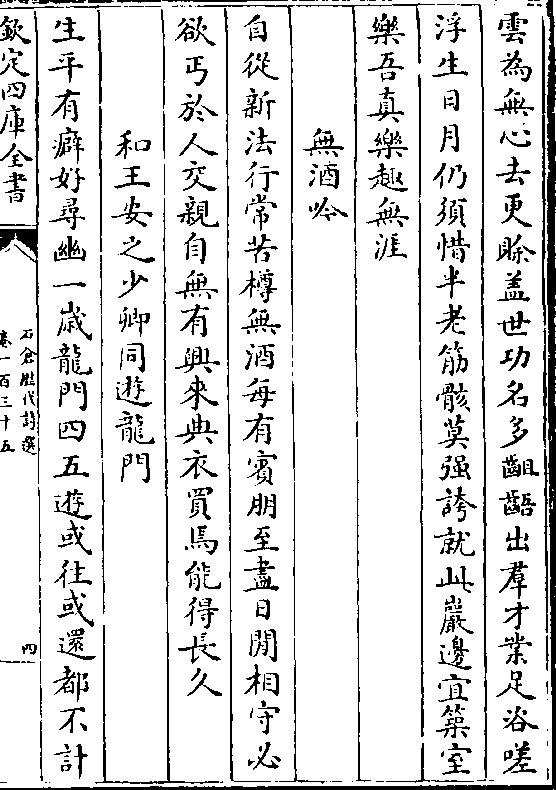 雲為無心去更賖盖世功名多齟齬出羣才業足咨嗟
浮生日月仍須惜半老筋骸莫强誇就此巖邊宜築室
樂吾真樂樂無涯
無酒吟
自從新法行常苦樽無酒每有賓朋至盡日閒相守必
欲丐於人交親自無有興來典衣買焉能得長久
和王安之少卿同遊龍門
生平有癖好尋幽一歳龍門四五遊或往或還都不計
欽定四庫全書
石倉歴代詩選
卷一百三十五
四